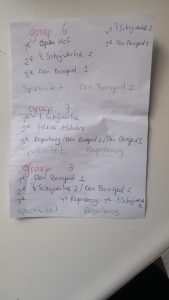 groep 6
1e Open Hof
2e 't Schijvertse 2
3e Den Bongerd 1
4e 't Schijvertse 1
5e Den Bongerd 2
Sportiviteit Den Bongerd 2
groep 7
1e 't Schijvertse
2e
3e Regenboog / Den Bongerd 2 / Den Bongerd 1
Sportiviteit Regenboog
groep 8
1e Den Bongerd 1
2e 't Schijvertse 2 / Den Bongerd 2
3e 4e Regenboog
Sportiviteit Regenboog